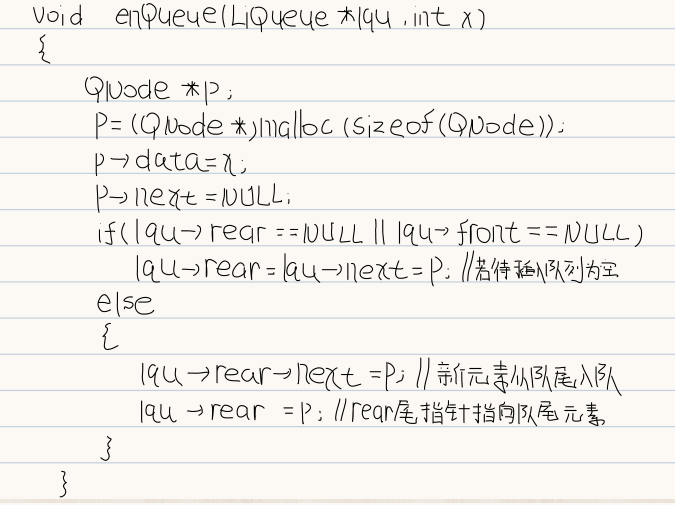 void enQueue(LiQueue *lqu, int x)
{
QNode *p;
p=(QNode *)malloc(sizeof(QNode));
p→data=x;
p→next=NULL;
if(lqu→rear==NULL || lqu→front==NULL)
lqu→rear=lqu→next=p; //若待插队列为空
else
{
lqu→rear→next=p; //新元素从队尾入队
lqu→rear =p; //rear尾指针指向队尾元素
}
}